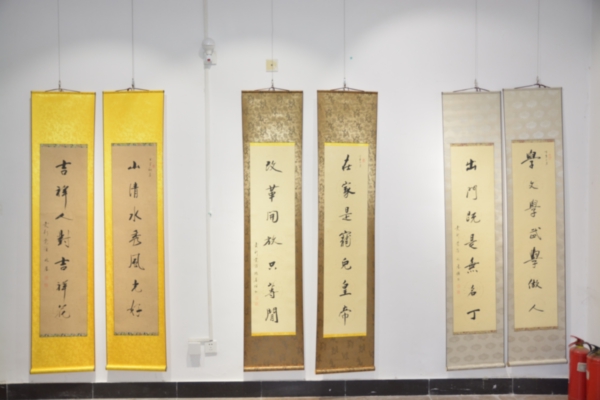 山清水秀風光好
吉祥人對吉祥花
在家是皇帝
改革開放只等閒
學文學武學做人
出門說是無名丁